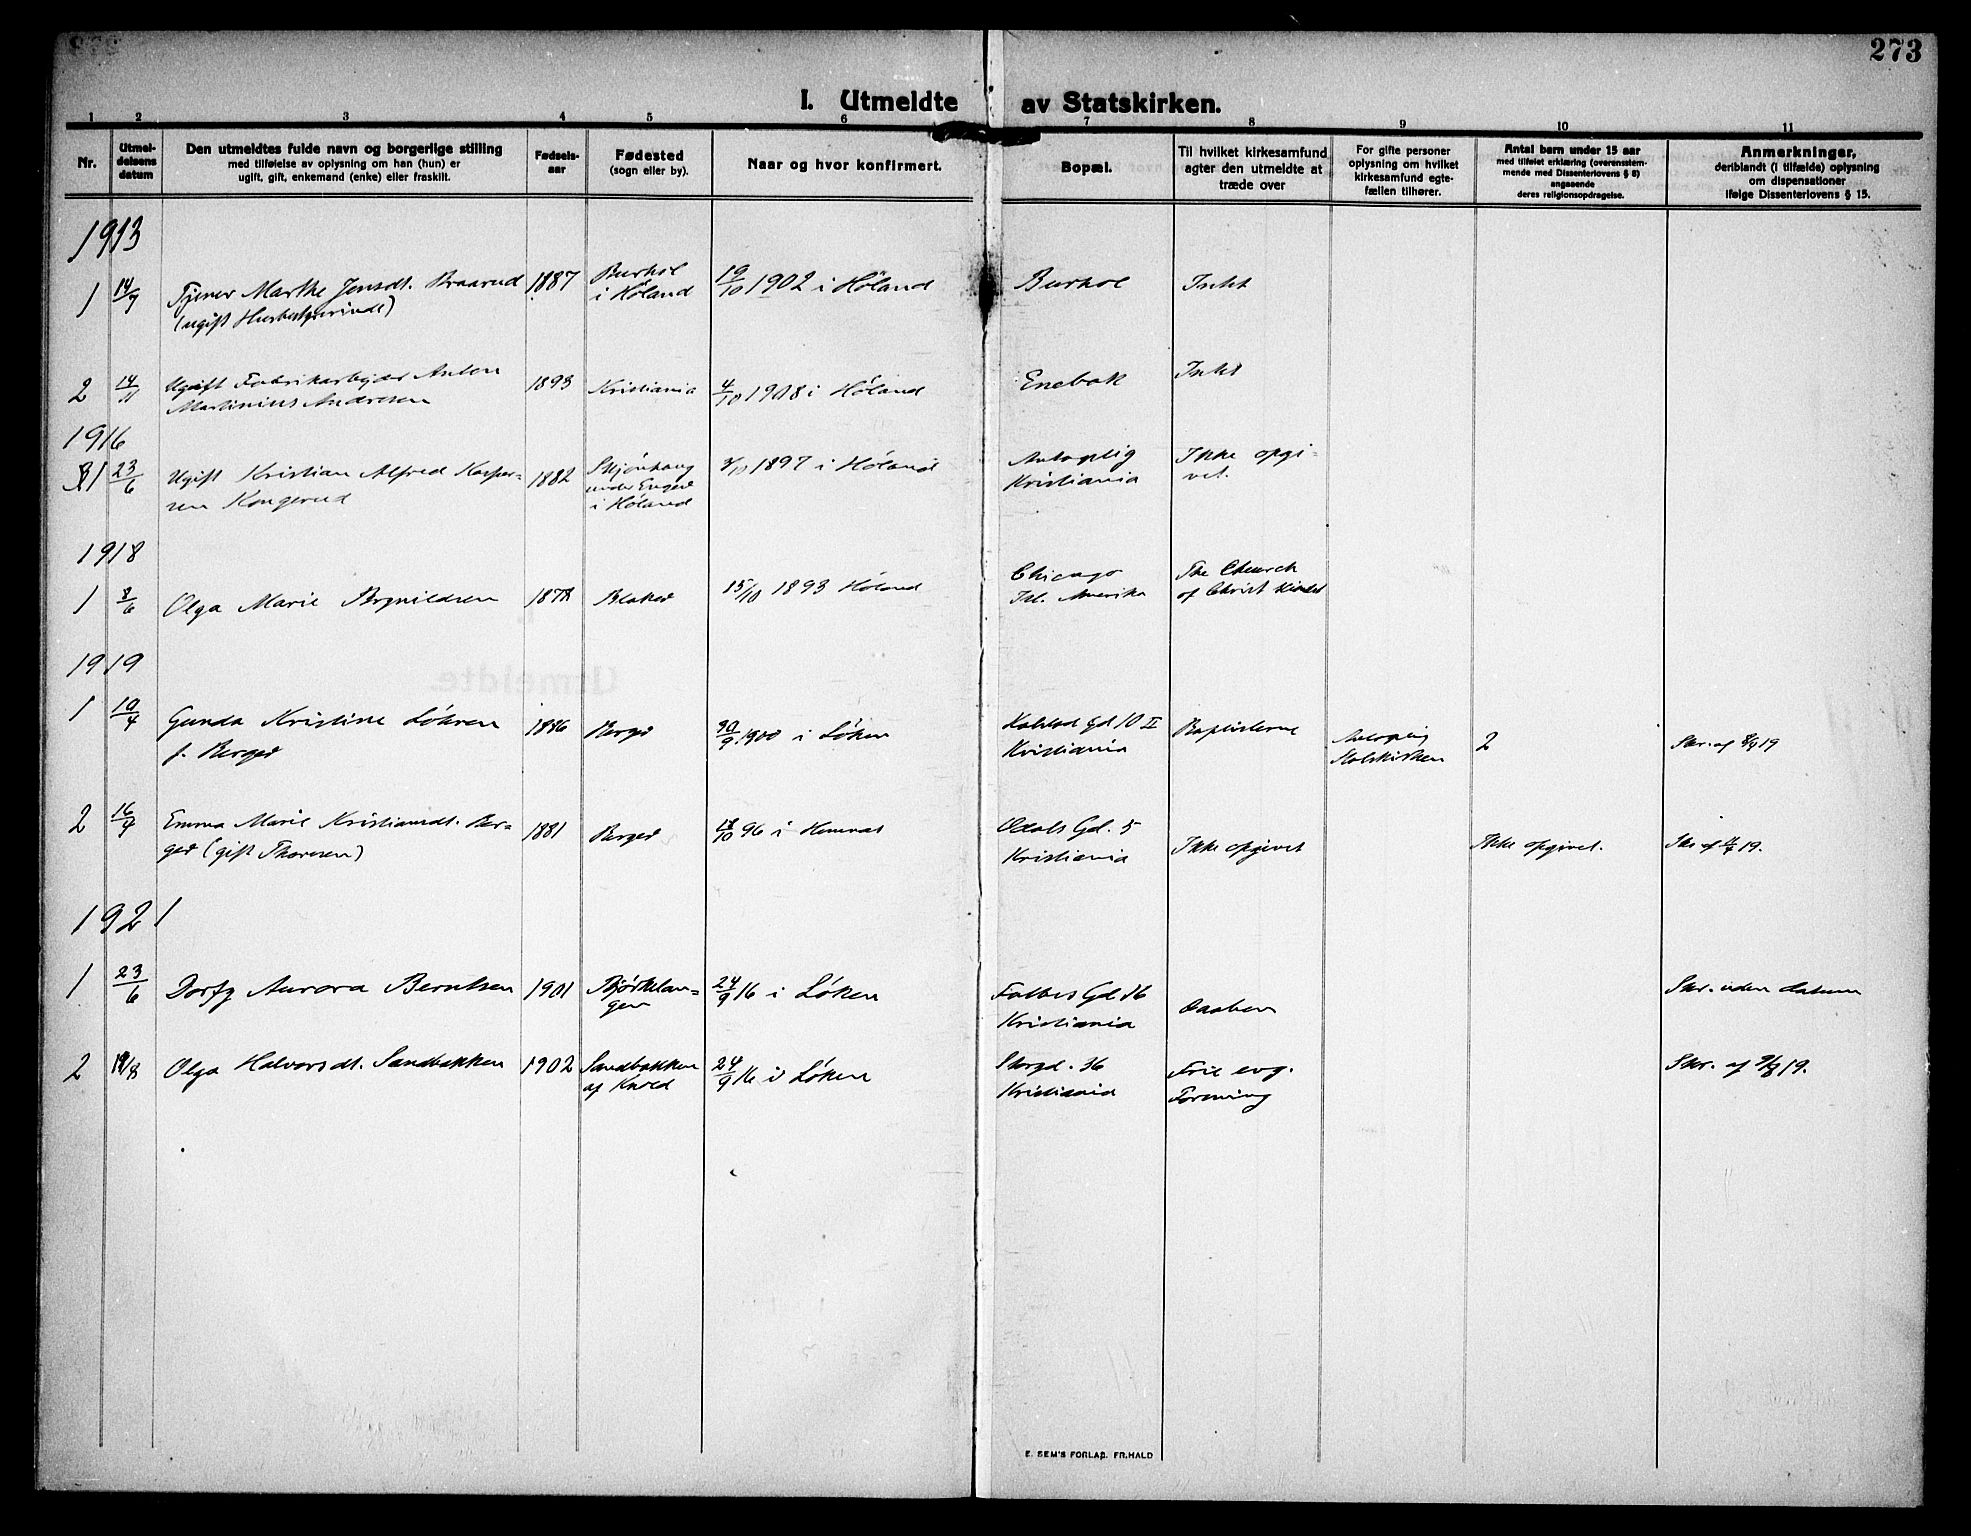 273
I. Utmeldte av Statskirken.
1 2 3 4 5 6 7 8 9 10 11
Nr.
Utmel-
delsens
datum
Den utmeldtes fulde navn og borgerlige stilling
med tilføielse av oplysning om han (hun) er
ugift, gift, enkemand (enke) eller fraskilt.
Fødsels-
aar
Fødested
(sogn eller by).
Naar og hvor konfirmert.
Bopæl.
Til hvilket kirkesamfund
agter den utmeldte at
træde over
For gifte personer
oplysning om hvilket
kirkesamfund egte-
fællen tilhører.
Antal barn under 15 aar
med tilføiet erklæring (overensstem-
mende med Dissenterlovens § 8)
angaaende
deres religionsopdragelse.
Anmerkninger,
deriblandt (i tilfælde) oplysning
om dispensationer
ifølge Dissenterlovens § 15.
1913
1 14/7 Tjener Marthe Jensdt. Braarud 1887 Burhol 19/10 1902 i Høland Burhol Intet
(ugift i Høland
2 14/11 Ugift Fabrikarbejder Anton 1893 Kristiania 4/10 1908 i Høland Enebak Intet
Martinius Andresen
1916
1 23/6 Ugift Kristian Alfred Kasper- 1882 Skjønhaug 3/10 1897 i Høland Antagelig Ikke opgi-
sen Kongerud under Enger Kristiania vet.
i Høland
1918
1 8/6 Olga Marie 1878 Blaker 15/10 1893 Høland Chicago The Church
Amerika of Christ
1919
1 10/4 Gunda Kristine Løkren 1886 Berger 30/9 1900 i Løken Gd 10 II Baptisterne Antagelig 2 Skr. af 19
f. Berger Kristiania Statskirken
2 16/4 Emma Marie Kristiansdt. Ber- 1881 Berger 18/10 96 i Hemnæs Odals Gd. 5 Ikke opgivet Ikke opgivet. Skr af 19.
ger (gift Thoresen) Kristiania
1921
1 23/6 Dorfy Aurora Berntsen 1901 Bjørkelan- 24/9 16 i Løken Falbes Gd 16 Daaben Skr. uden datum
gen Kristiania
2 Olga Halvorsdt. Sandbakken 1902 Sandbakken 24/9 16 i Løken Storgd. 36 Frie evg. Skr. af 9/8 19.
af Kristiania Forening
E. SEM'S FORLAG. FR.HALD